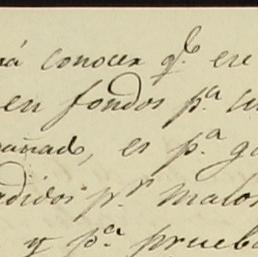 rá conocer q.e en
en fondos p.a
añado, es p.a ga
didos p.r malos
y p.a prueba